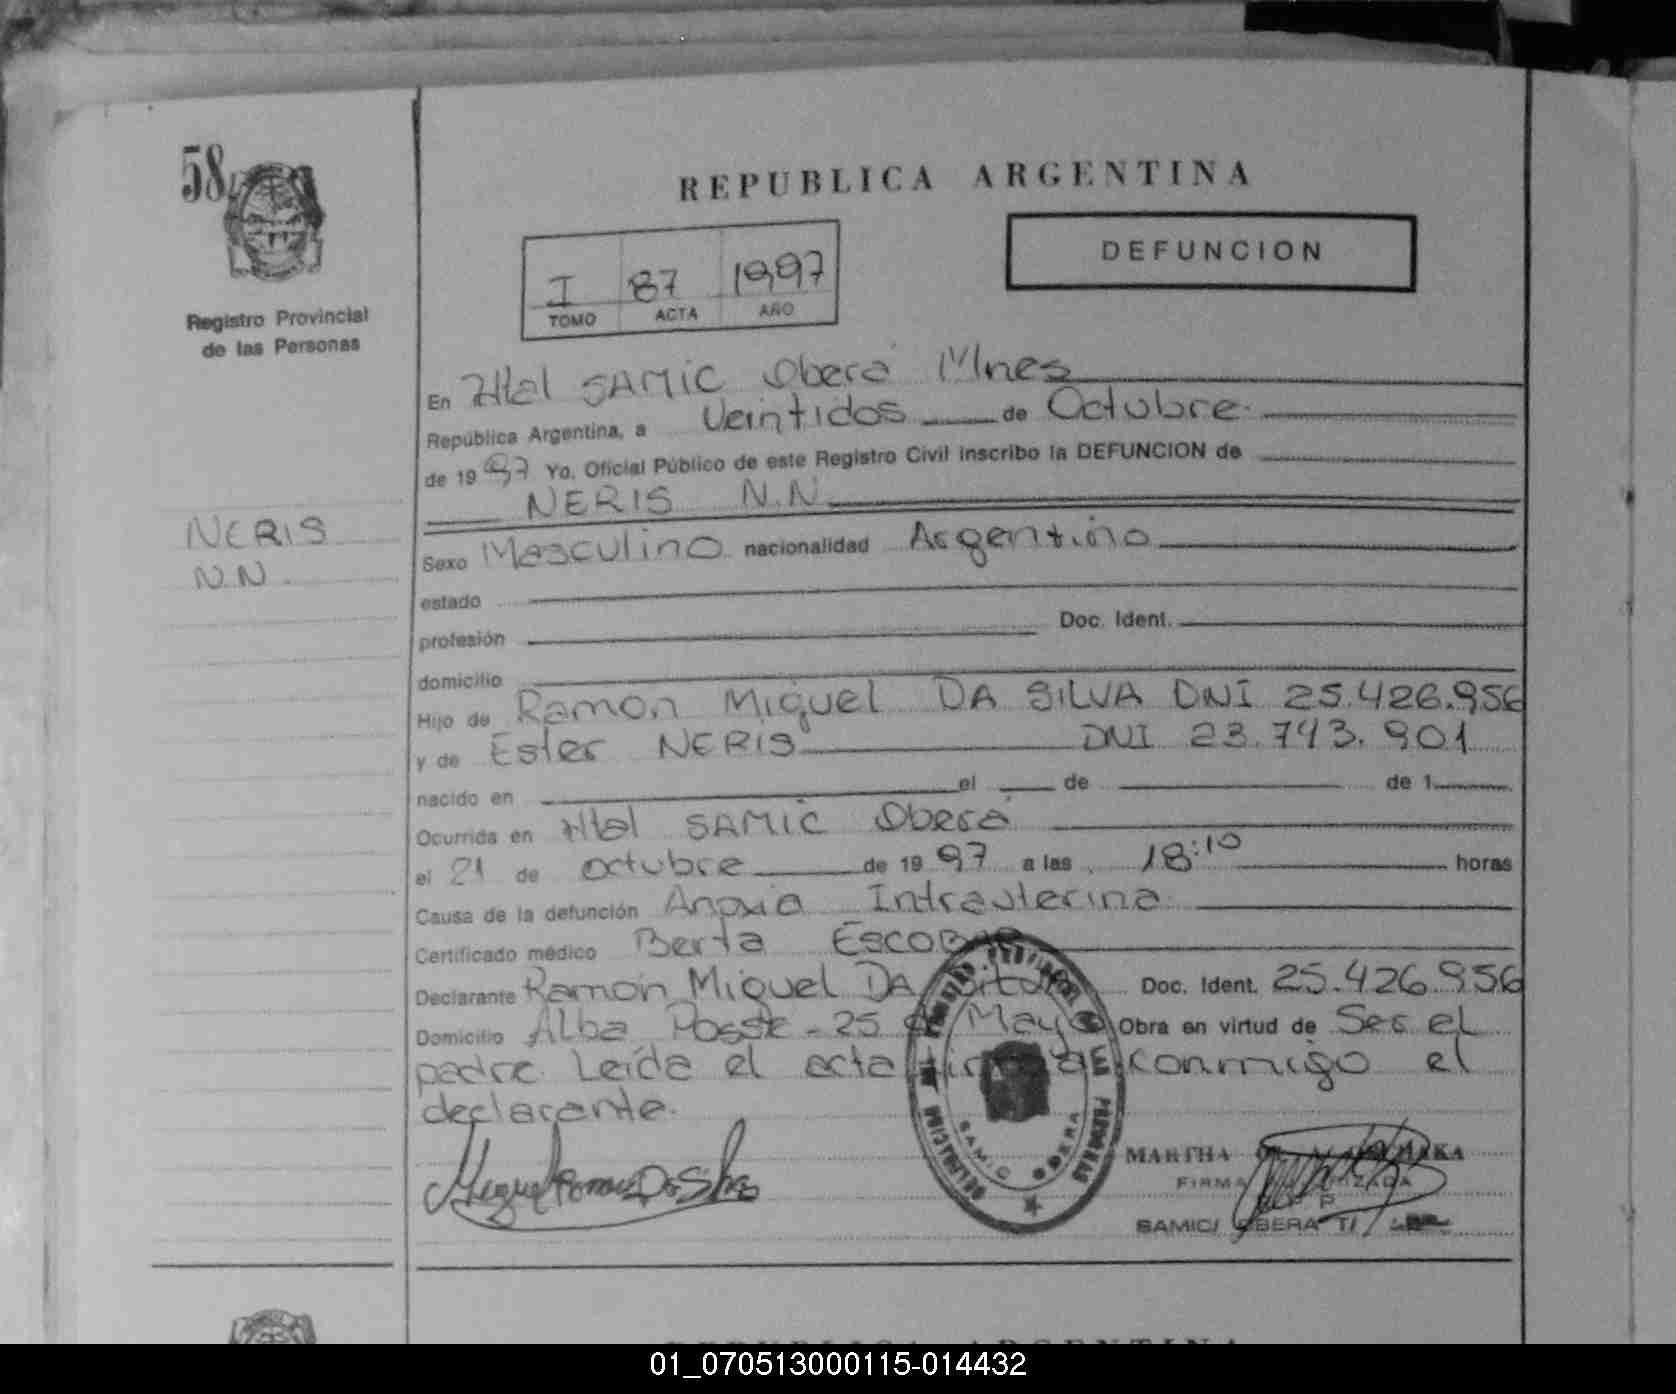 58
REPUBLICA ARGENTINA
DEFUNCION
I 87 1997
TOMO ACTA AÑO
Registro Provincial
de las Personas
En Htal SAMIC Oberá Mnes
República Argentina, a Veintidos de Octubre
de 1997 Yo, Oficial Público de este Registro Civil inscribo la DEFUNCION de
NERIS N.N
NERIS
N.N.
Sexo Masculino nacionalidad Argentino
estado
profesión Doc. Ident.
domicilio
Hijo de Ramón Miguel DA SILVA DNI 25.426.956
y de Ester NERIS DNI 23.743.901
nacido en el de de 1
Ocurrida en Htal SAMIC Oberá
el 21 de octubre de 1997 a las 18:10 horas
Causa de la defunción Anoxia Intrauterina
Certificado médico Berta ESCOBAR
Declarante Ramón Miguel DA Doc. Ident. 25.426.956
Domicilio Alba Posse - 25 de Mayo Obra en virtud de Ser el
padre. Leída el acta firma conmigo el
declarante.
SAMIC OBERA
MARTHA
FIRMA
SAMIC/ OBERA
REPUBLICA ARGENTINA
01_070513000115-014432